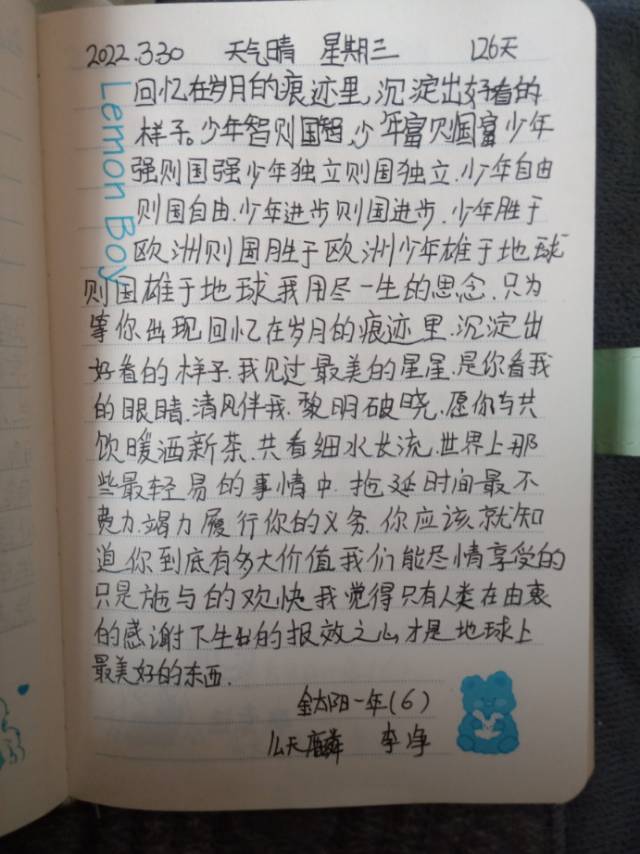 2022.3.30 天气晴 星期三 126天
Lemon Boy
回忆在岁月的痕迹里,沉淀出好看的
样子。少年智则国智,少年富则国富少年
强则国强少年独立则国独立.少年自由
则国自由.少年进步则国进步.少年胜于
欧洲则国胜于欧洲少年雄于地球
则国雄于地球我用尽一生的思念.只为
等你出现回忆在岁月的痕迹里.沉淀出
好看的样子.我见过最美的星星.是你看我
的眼睛.清风伴我.黎明破晓.愿你与共
饮暖洒新茶.共看细水长流.世界上那
些最轻易的事情中.拖延时间最不
费力.竭力履行你的义务.你应该就知
道你到底有多大价值.我们能尽情享受的
只是施与的欢快.我觉得只有人类在由衷
的感谢下生出的报效之心才是地球上
最美好的东西.
金太阳一年(6)
天麟 李净